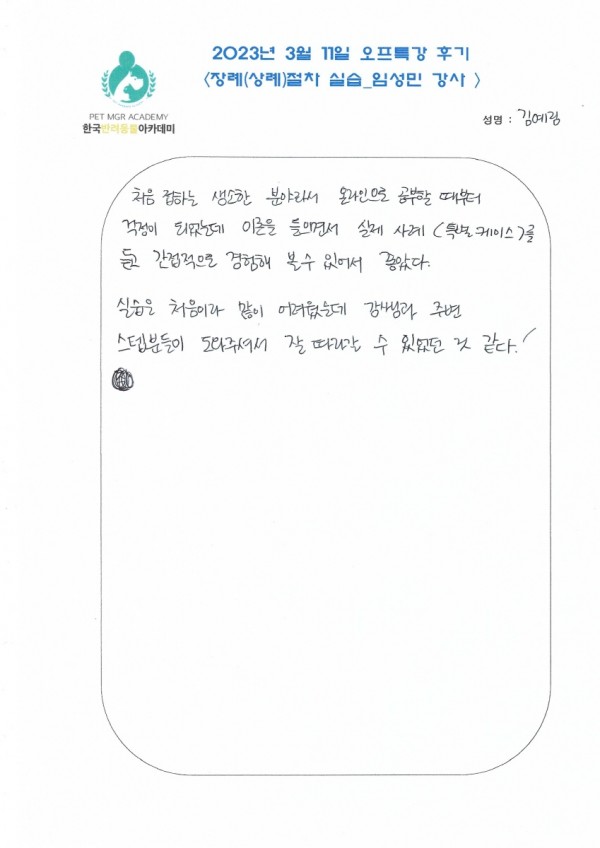 2023년 3월 11일 오프특강 후기
<장례(상례)절차 실습_임성민 강사 >
PET MGR ACADEMY
한국반려동물아카데미
성명 : 김예림
처음 접하는 생소한 분야라서 온라인으로 공부할 때부터
걱정이 되었는데 이론을 들으면서 실제 사례 (특별케이스)를
듣고 간접적으로 경험해 볼 수 있어서 좋았다.
실습은 처음이라 많이 어려웠는데 강사님과 주변
스텝분들이 도와주셔서 잘 따라갈 수 있었던 것 같다!